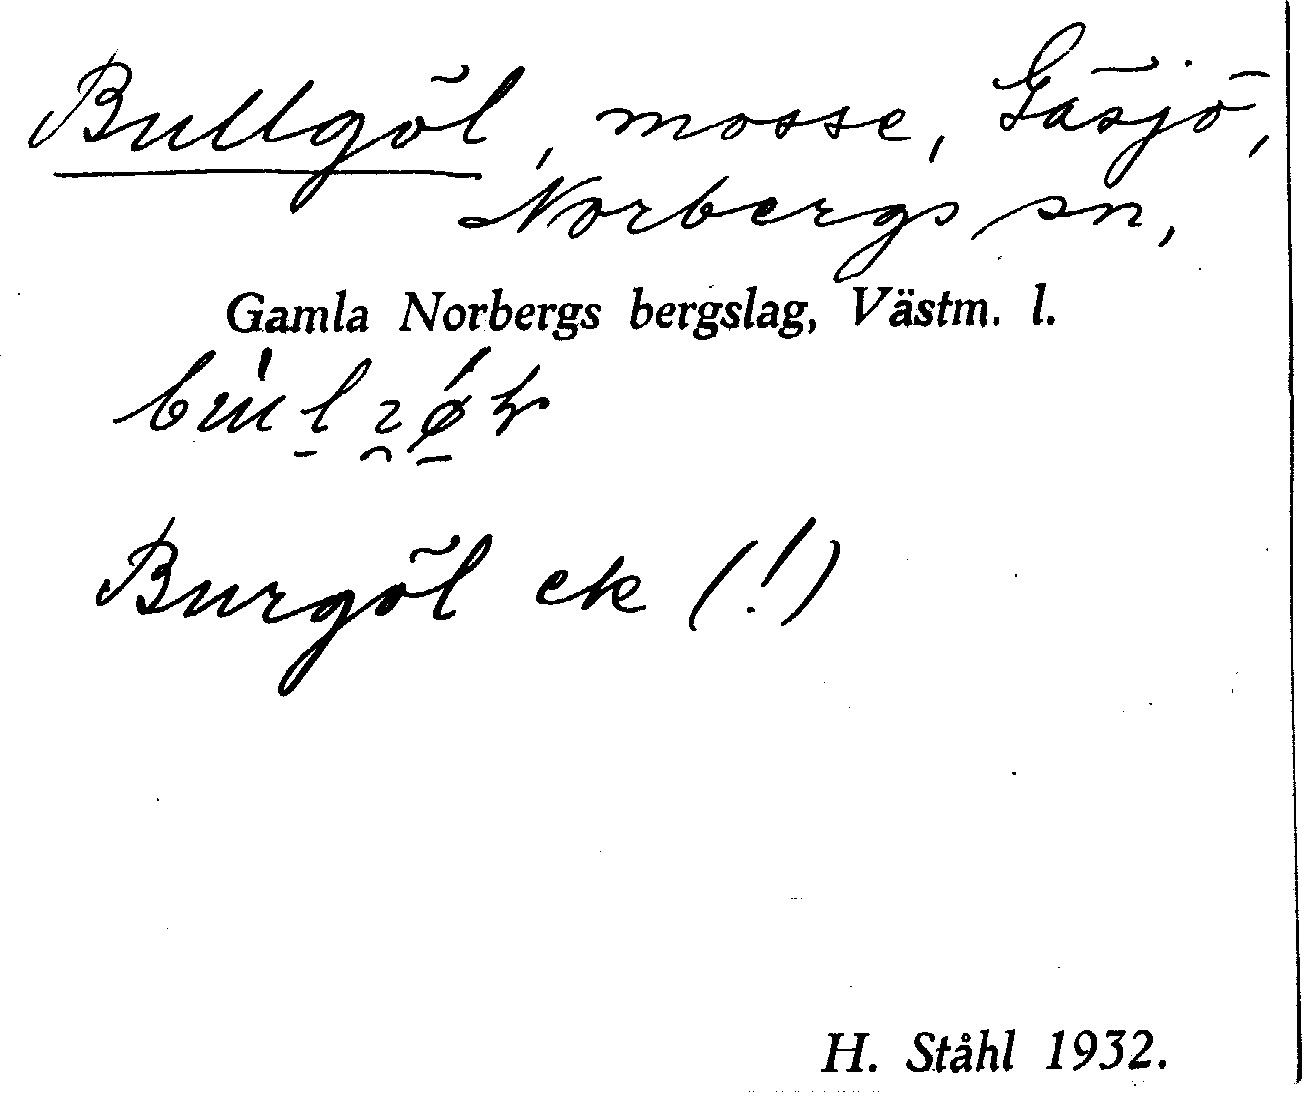 Bullgöl, mosse, Gäsjö,
Norbergs sn,
Gamla Norbergs bergslag, Västm. l.
Burgöl ek (!)
H. Ståhl 1932.